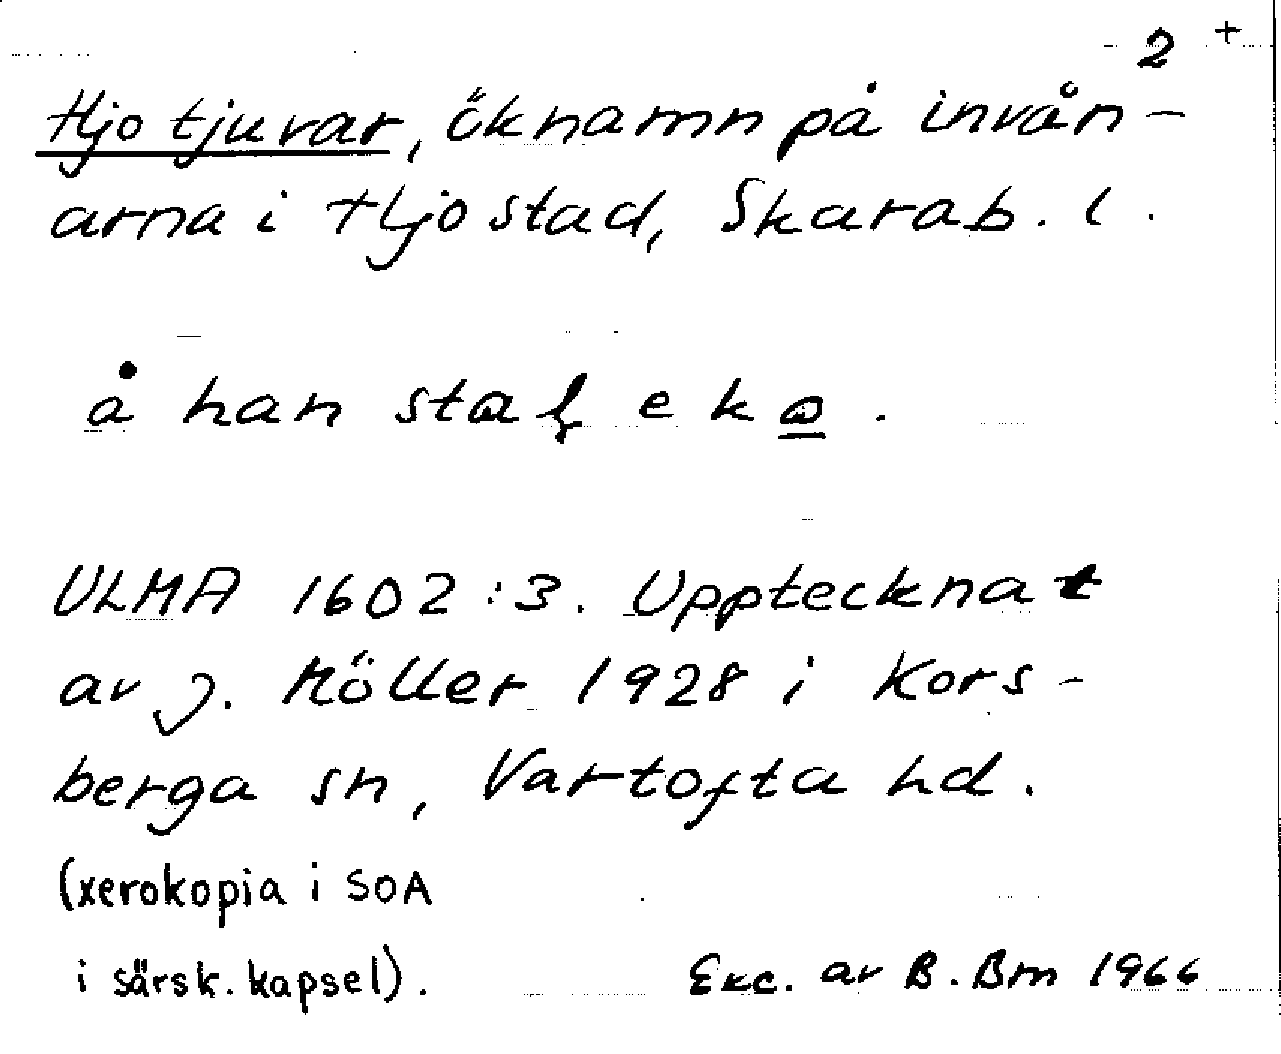 2 +
Hjo tjuvar, öknamn på invån-
arna i Hjo stad, Skarab. l.
å han
ULMA 1602:3. Upptecknat
av J. Möller 1928 i Kors-
berga sn, Vartofta hd.
(xerokopia i SOA
i särsk. kapsel).
Exc. av B. Bm 1966